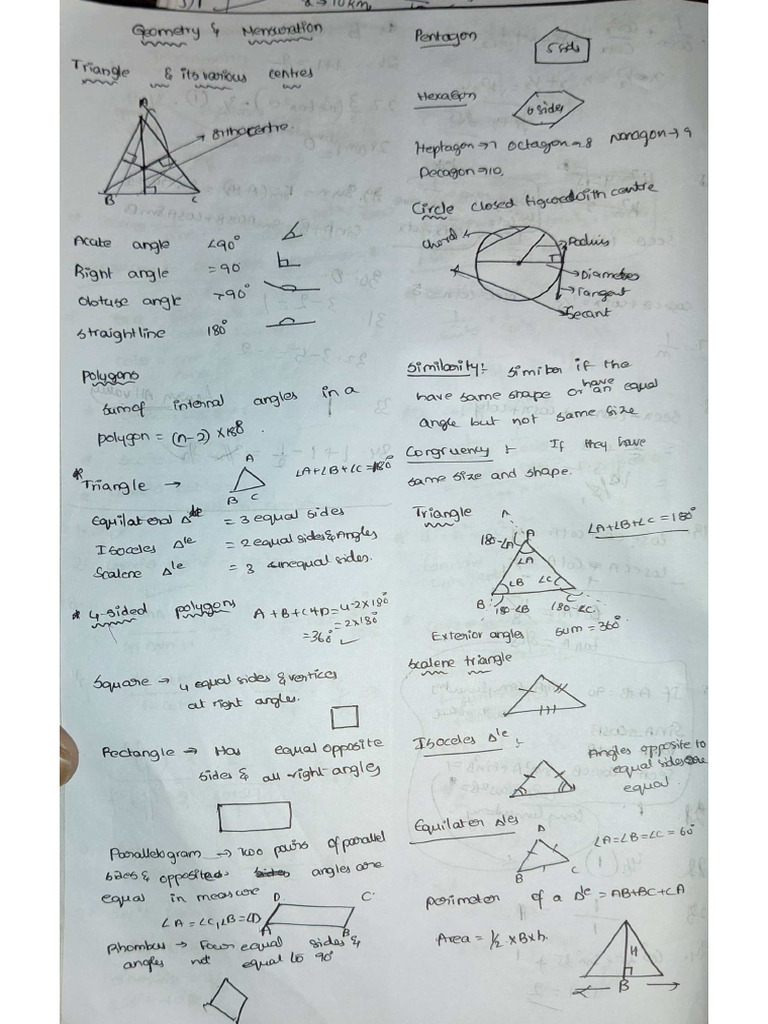 Geometry & Mensuration
Triangle & its various centres
A
→ Orthocentre.
B C
Acute angle <90°
Right angle = 90
Obtuse angle >90°
Straight line 180°
Polygons
Sum of internal angles in a
polygon = (n-2) × 180.
* Triangle → A
B C
∠A+∠B+∠C=180°
Equilateral Δle = 3 equal sides
Isoceles Δle = 2 equal sides & Angles
Scalene Δle = 3 unequal sides.
* 4-sided polygons A+B+C+D=4-2×180°
= 2×180°
=360°
Square → 4 equal sides & vertices
at right angles.
Rectangle → Has equal opposite
sides & all right angles
Parallelogram → Two pairs of parallel
sides & opposite angles are
equal in measure
D. C'
∠A = ∠C, ∠B = ∠D
A B
Rhombus → Four equal sides &
angles not equal to 90°
Pentagon 5 sides
Hexagon 6 sides
Heptagon → 7 Octagon → 8 Nonagon → 9
Decagon → 10.
Circle closed figure with centre
chord
→ Radius
→ Diameter
→ Tangent
→ Secant
Similarity: Similar if the
have same shape or have an equal
angle but not same size
Congruency :- If they have
same size and shape.
Triangle A
180-∠A A
∠A+∠B+∠C = 180°
∠A
∠B ∠C
B 180-∠B 180-∠C C
Exterior angles sum = 360°
Scalene triangle
Isoceles Δle :-
Angles opposite to
equal sides are
equal
Equilater Δles A
B C
∠A=∠B=∠C = 60°
Perimeter of a Δle = AB+BC+CA
Area = 1/2 × B × h.
H
B